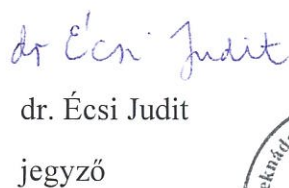 dr Écsi Judit
dr. Écsi Judit
jegyző
eknáda